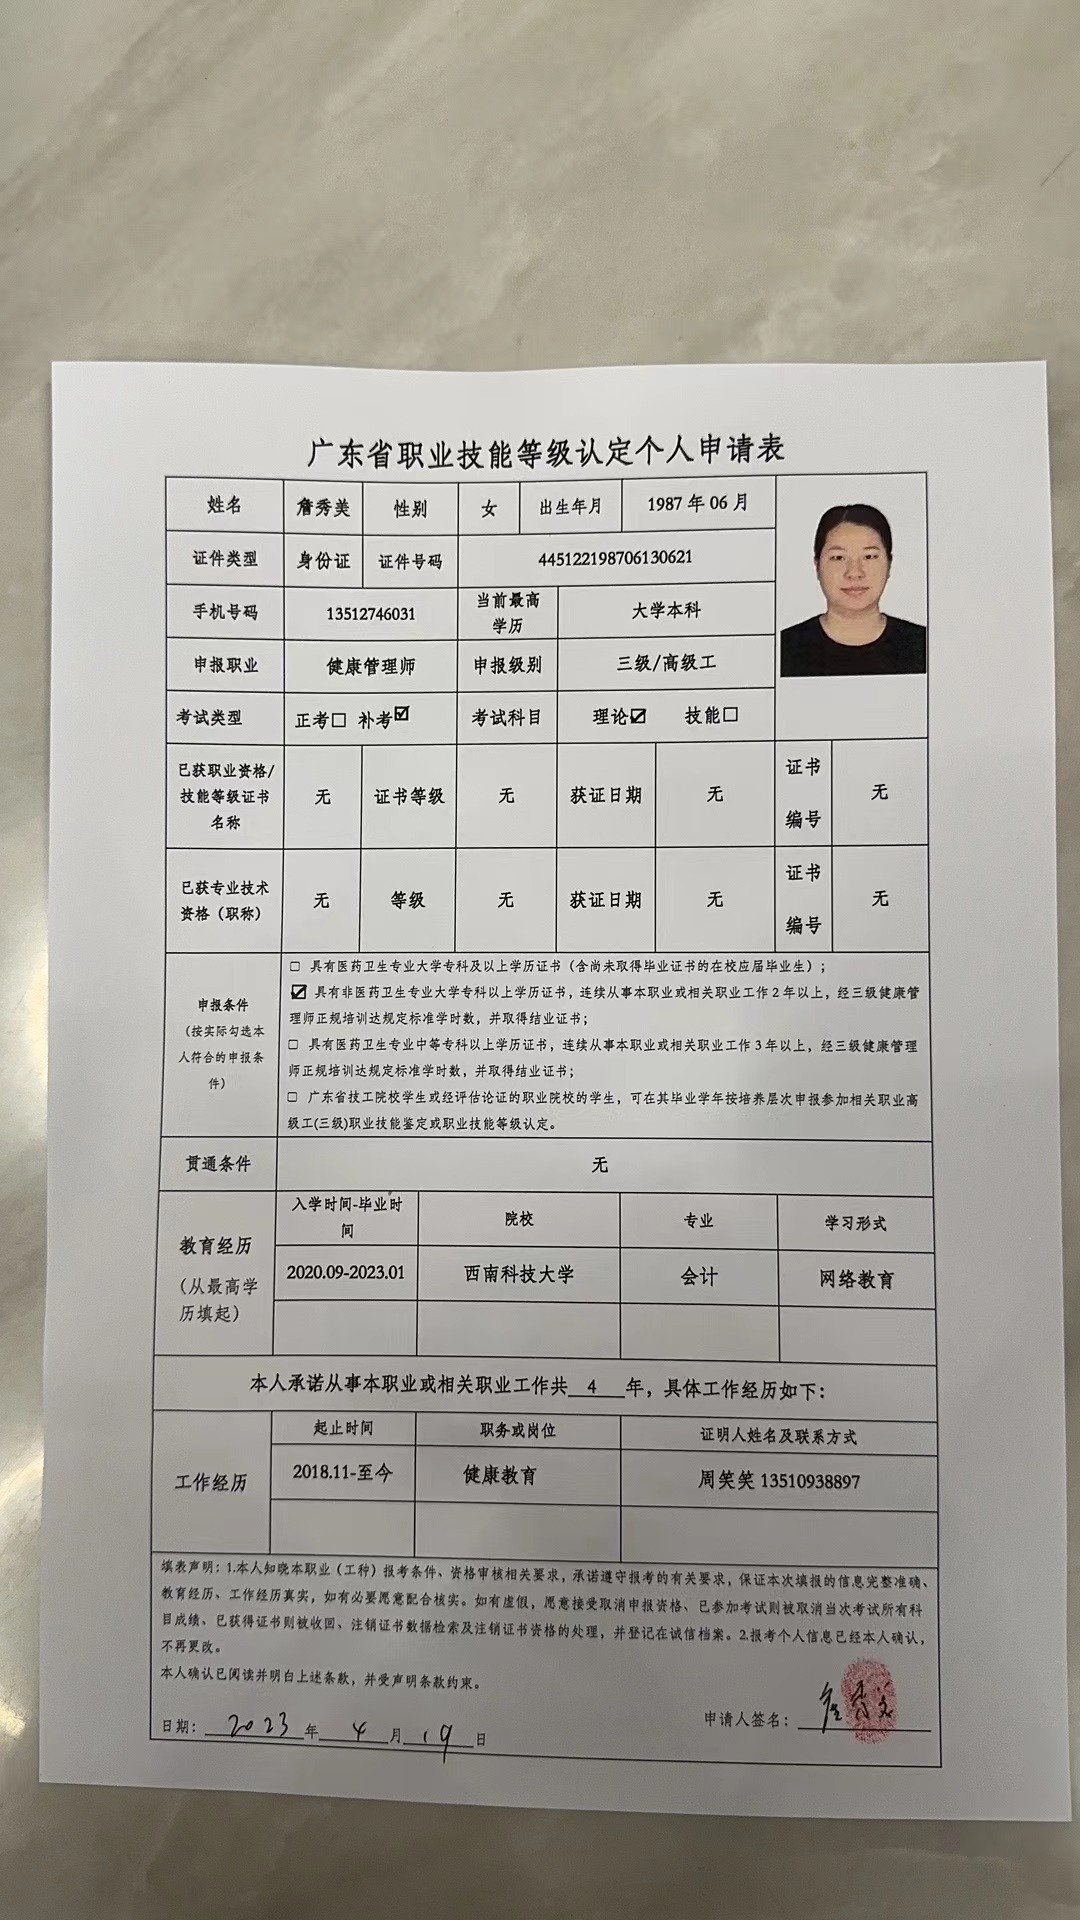 广东省职业技能等级认定个人申请表
姓名 詹秀美 性别 女 出生年月 1987 年 06 月
证件类型 身份证 证件号码 445122198706130621
手机号码 13512746031 当前最高
学历 大学本科
申报职业 健康管理师 申报级别 三级/高级工
考试类型 正考□ 补考☑ 考试科目 理论☑ 技能□
已获职业资格/
技能等级证书
名称 无 证书等级 无 获证日期 无 证书
编号 无
已获专业技术
资格（职称） 无 等级 无 获证日期 无 证书
编号 无
申报条件
（按实际勾选本
人符合的申报条
件）
□ 具有医药卫生专业大学专科及以上学历证书（含尚未取得毕业证书的在校应届毕业生）；
☑ 具有非医药卫生专业大学专科以上学历证书，连续从事本职业或相关职业工作 2 年以上，经三级健康管
理师正规培训达规定标准学时数，并取得结业证书；
□ 具有医药卫生专业中等专科以上学历证书，连续从事本职业或相关职业工作 3 年以上，经三级健康管理
师正规培训达规定标准学时数，并取得结业证书；
□ 广东省技工院校学生或经评估论证的职业院校的学生，可在其毕业学年按培养层次申报参加相关职业高
级工(三级)职业技能鉴定或职业技能等级认定。
贯通条件 无
教育经历
（从最高学
历填起）
入学时间-毕业时
间 院校 专业 学习形式
2020.09-2023.01 西南科技大学 会计 网络教育
本人承诺从事本职业或相关职业工作共 4 年，具体工作经历如下：
工作经历
起止时间 职务或岗位 证明人姓名及联系方式
2018.11-至今 健康教育 周笑笑 13510938897
填表声明：1.本人知晓本职业（工种）报考条件、资格审核相关要求，承诺遵守报考的有关要求，保证本次填报的信息完整准确、
教育经历、工作经历真实，如有必要愿意配合核实。如有虚假，愿意接受取消申报资格、已参加考试则被取消当次考试所有科
目成绩、已获得证书则被收回、注销证书数据检索及注销证书资格的处理，并登记在诚信档案。2.报考个人信息已经本人确认，
不再更改。
本人确认已阅读并明白上述条款，并受声明条款约束。
日期： 2023 年 4 月 19 日 申请人签名： 詹秀美